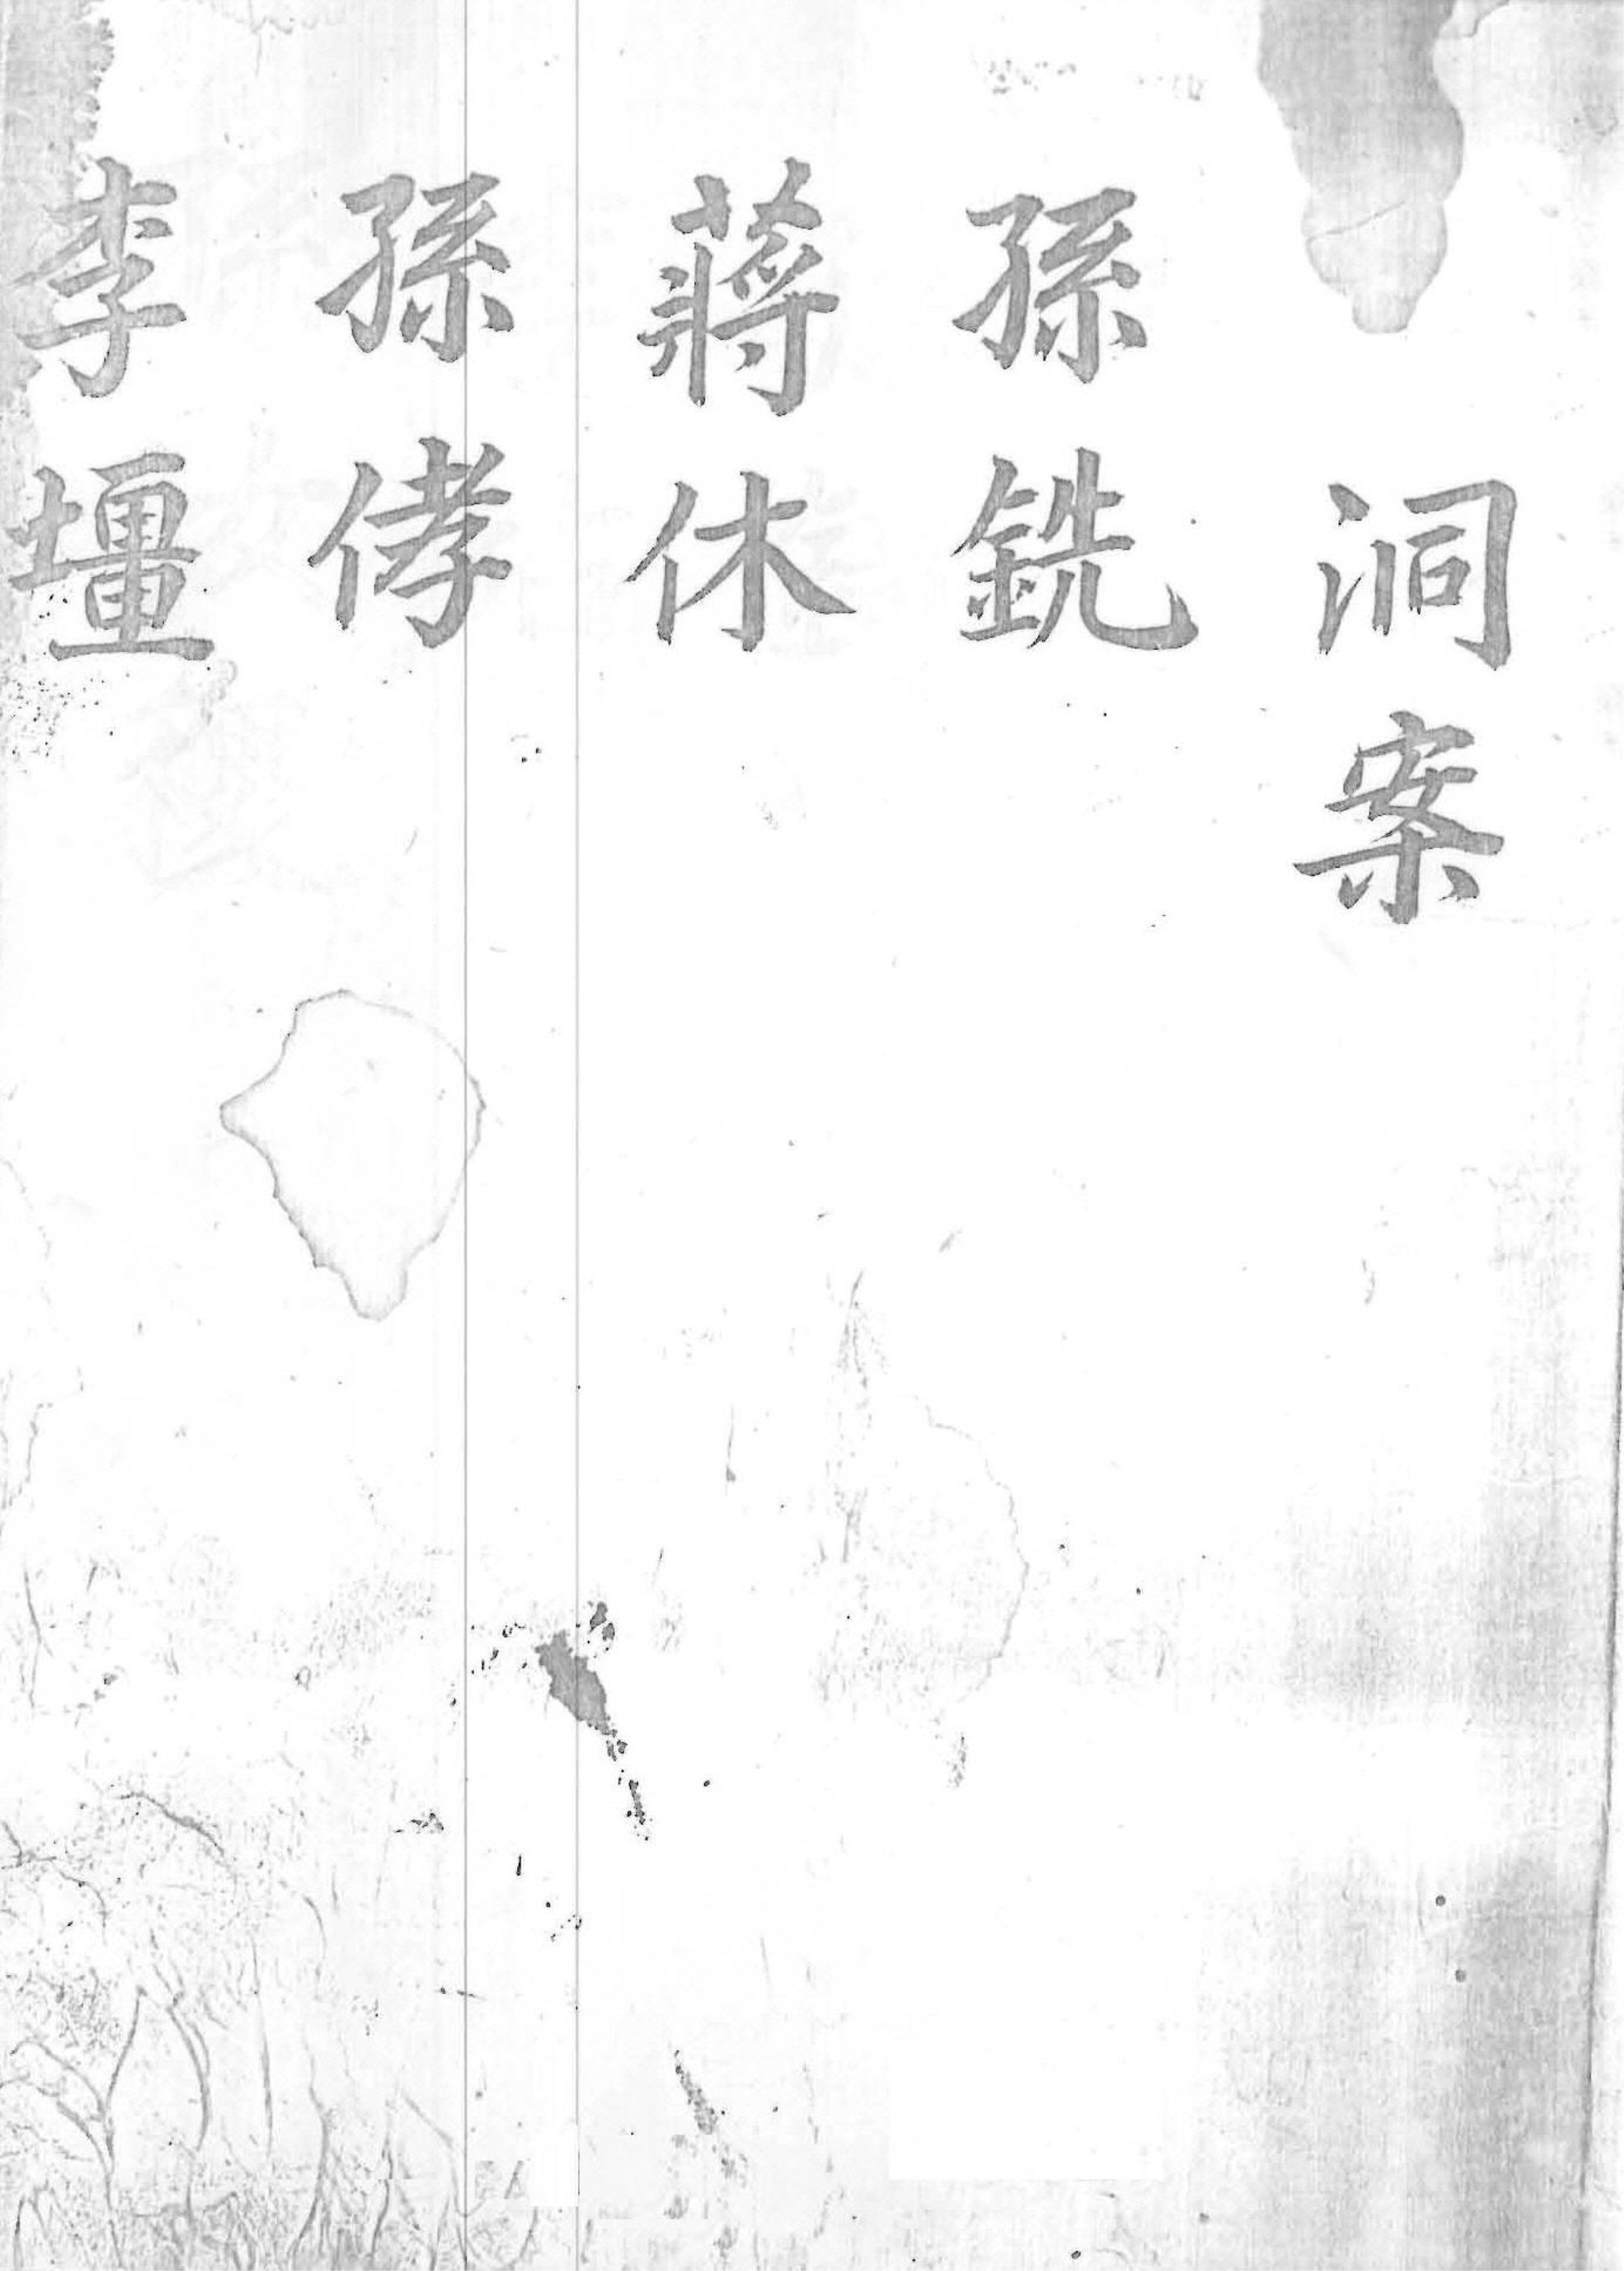 洞案
孫銑
蔣休
孫侾
李壃